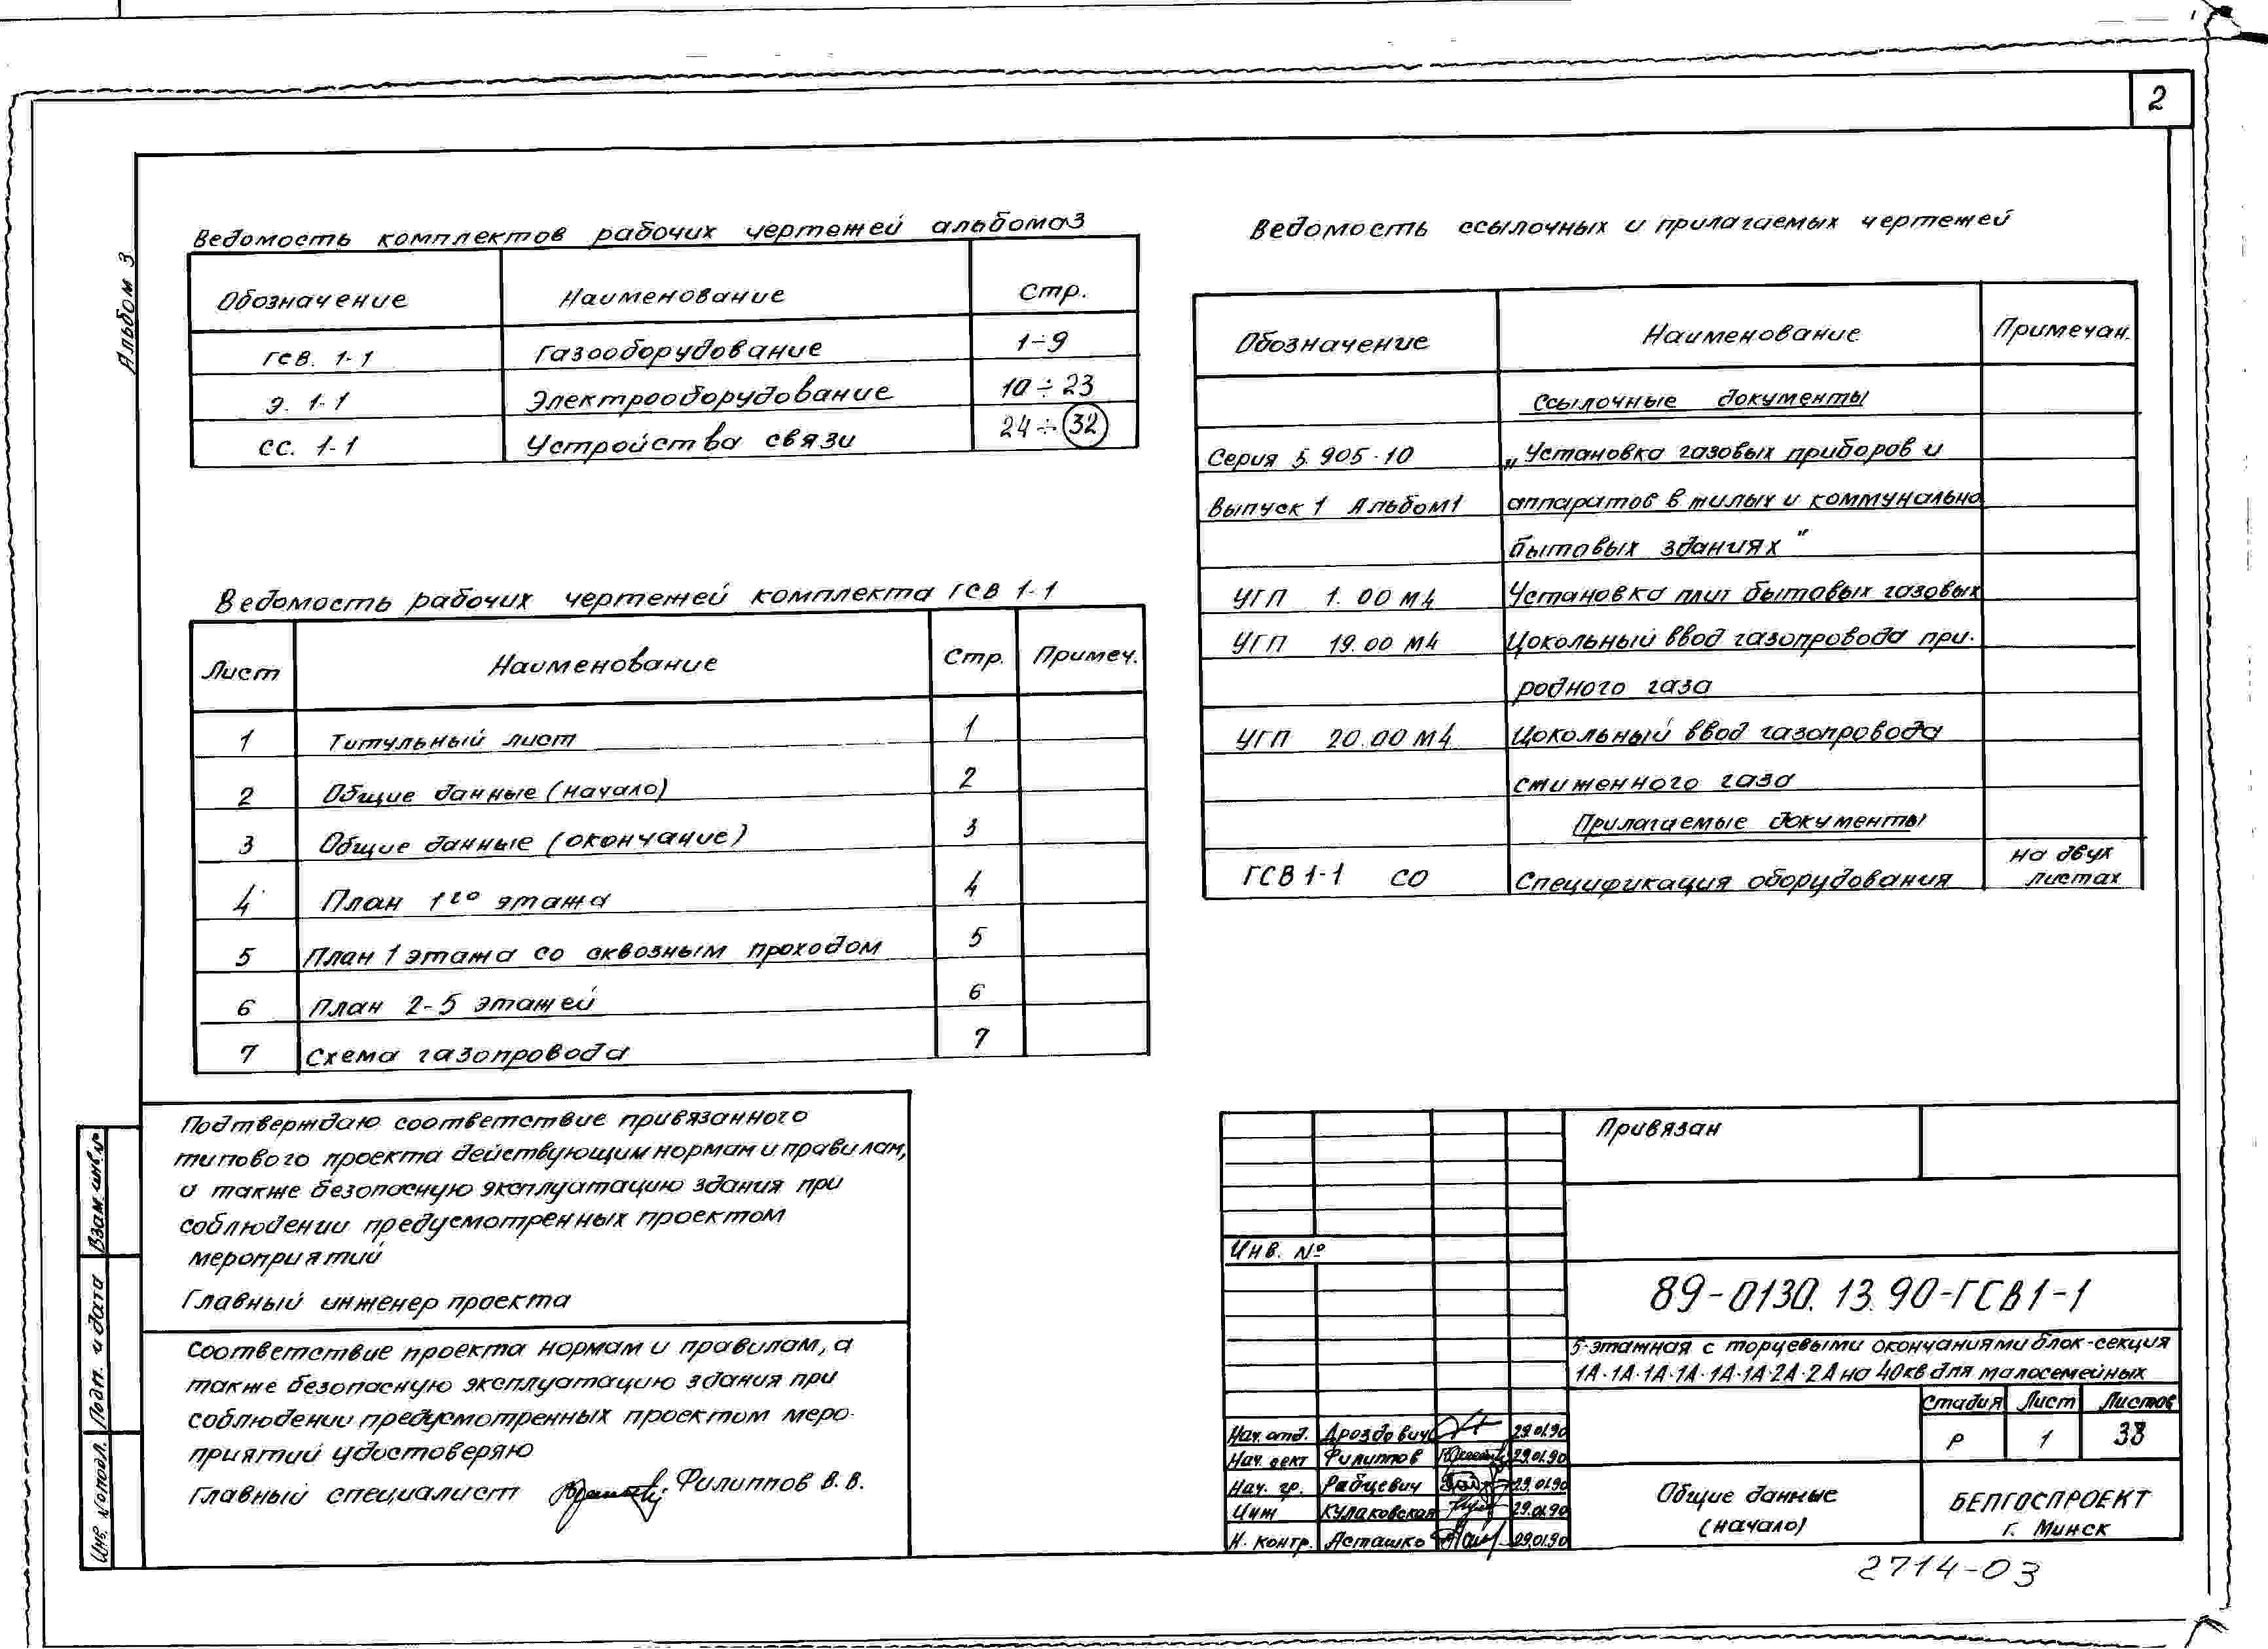 2
Альбом 3
Ведомость комплектов рабочих чертежей альбома3
Обозначение Наименование Стр.
ГСВ. 1-1 Газооборудование 1÷9
Э. 1-1 Электрооборудование 10÷23
СС. 1-1 Устройства связи 24÷32
Ведомость рабочих чертежей комплекта ГСВ 1-1
Лист Наименование Стр. Примеч.
1 Титульный лист 1
2 Общие данные (начало) 2
3 Общие данные (окончание) 3
4 План 1го этажа 4
5 План 1 этажа со сквозным проходом 5
6 План 2-5 этажей 6
7 Схема газопровода 7
Ведомость ссылочных и прилагаемых чертежей
Обозначение Наименование Примечан.
Ссылочные документы
Серия 5.905-10 „Установка газовых приборов и
Выпуск 1 Альбом1 аппаратов в жилых и коммунально
бытовых зданиях"
УГП 1.00 М4 Установка плит бытовых газовых
УГП 19.00 М4 Цокольный ввод газопровода при-
родного газа
УГП 20.00 М4 Цокольный ввод газопровода
сжиженного газа
Прилагаемые документы
ГСВ 1-1 СО Спецификация оборудования на двух
листах
Подтверждаю соответствие привязанного
типового проекта действующим нормам и правилам,
а также безопасную эксплуатацию здания при
соблюдении предусмотренных проектом
мероприятий
Главный инженер проекта
Соответствие проекта нормам и правилам, а
также безопасную эксплуатацию здания при
соблюдении предусмотренных проектом меро-
приятий удостоверяю
Главный специалист Филиппов В.В.
Взам. инв. №
Подп. и дата
Инв. № подл.
Привязан
Инв. №
89-0130.13.90-ГСВ1-1
5-этажная с торцевыми окончаниями блок-секция
1А-1А-1А-1А-1А-1А-2А-2А на 40кв для малосемейных
Стадия Лист Листов
Р 1 38
Нач. отд. Дроздович 29.01.90
Нач. сект Филиппов 29.01.90
Нач. гр. Рабцевич 29.01.90
Инж Кулаковская 29.01.90
Н. контр. Асташко 29.01.90
Общие данные
(начало)
БЕЛГОСПРОЕКТ
г. Минск
2714-03